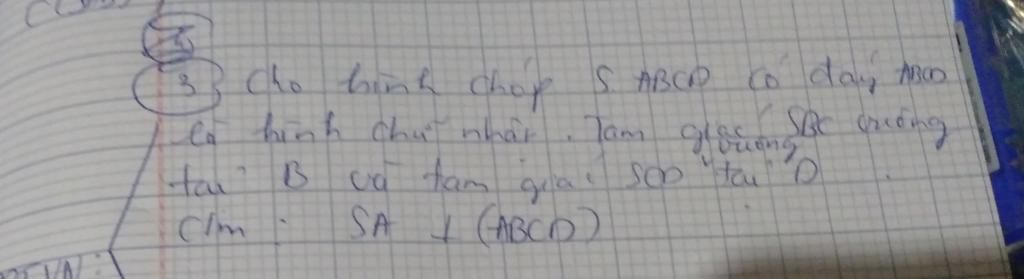 3 Cho hình chóp S ABCD có đáy ABCD
là hình chữ nhật. Tam giác SBC vuông
tại B và tam giác SCD vuông tại D
C/m : SA ⊥ (ABCD)